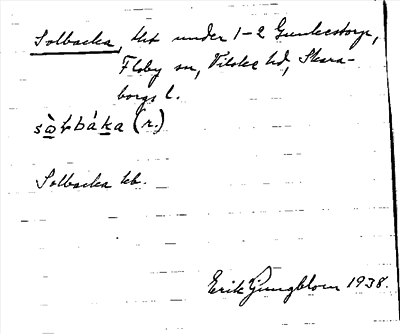 Solbacka, lht under 1-2 Gunlestorp,
Floby sn, Vilske hd, Skara-
borgs l.
sò̠ɫbáka (r.)
Solbacka kb.
Erik Ljungblom 1938.